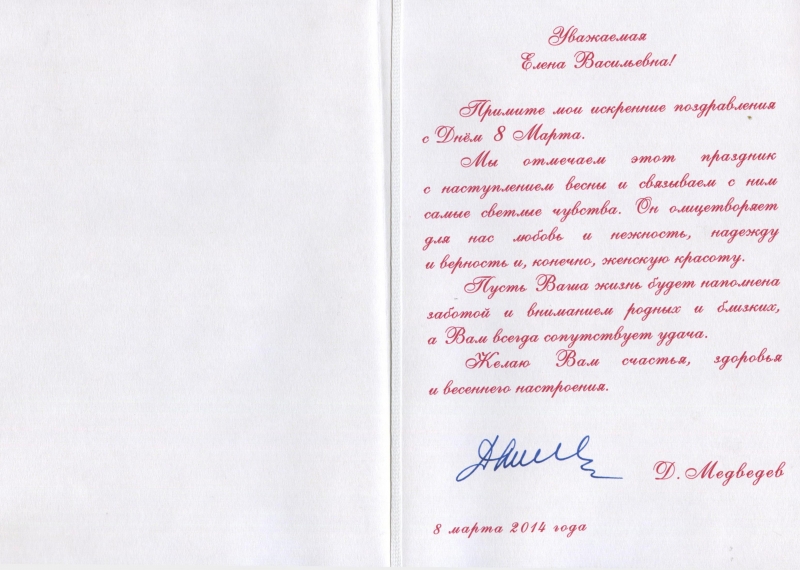 Уважаемая
Елена Васильевна!
Примите мои искренние поздравления
с Днём 8 Марта.
Мы отмечаем этот праздник
с наступлением весны и связываем с ним
самые светлые чувства. Он олицетворяет
для нас любовь и нежность, надежду
и верность и, конечно, женскую красоту.
Пусть Ваша жизнь будет наполнена
заботой и вниманием родных и близких,
а Вам всегда сопутствует удача.
Желаю Вам счастья, здоровья
и весеннего настроения.
Д. Медведев
8 марта 2014 года